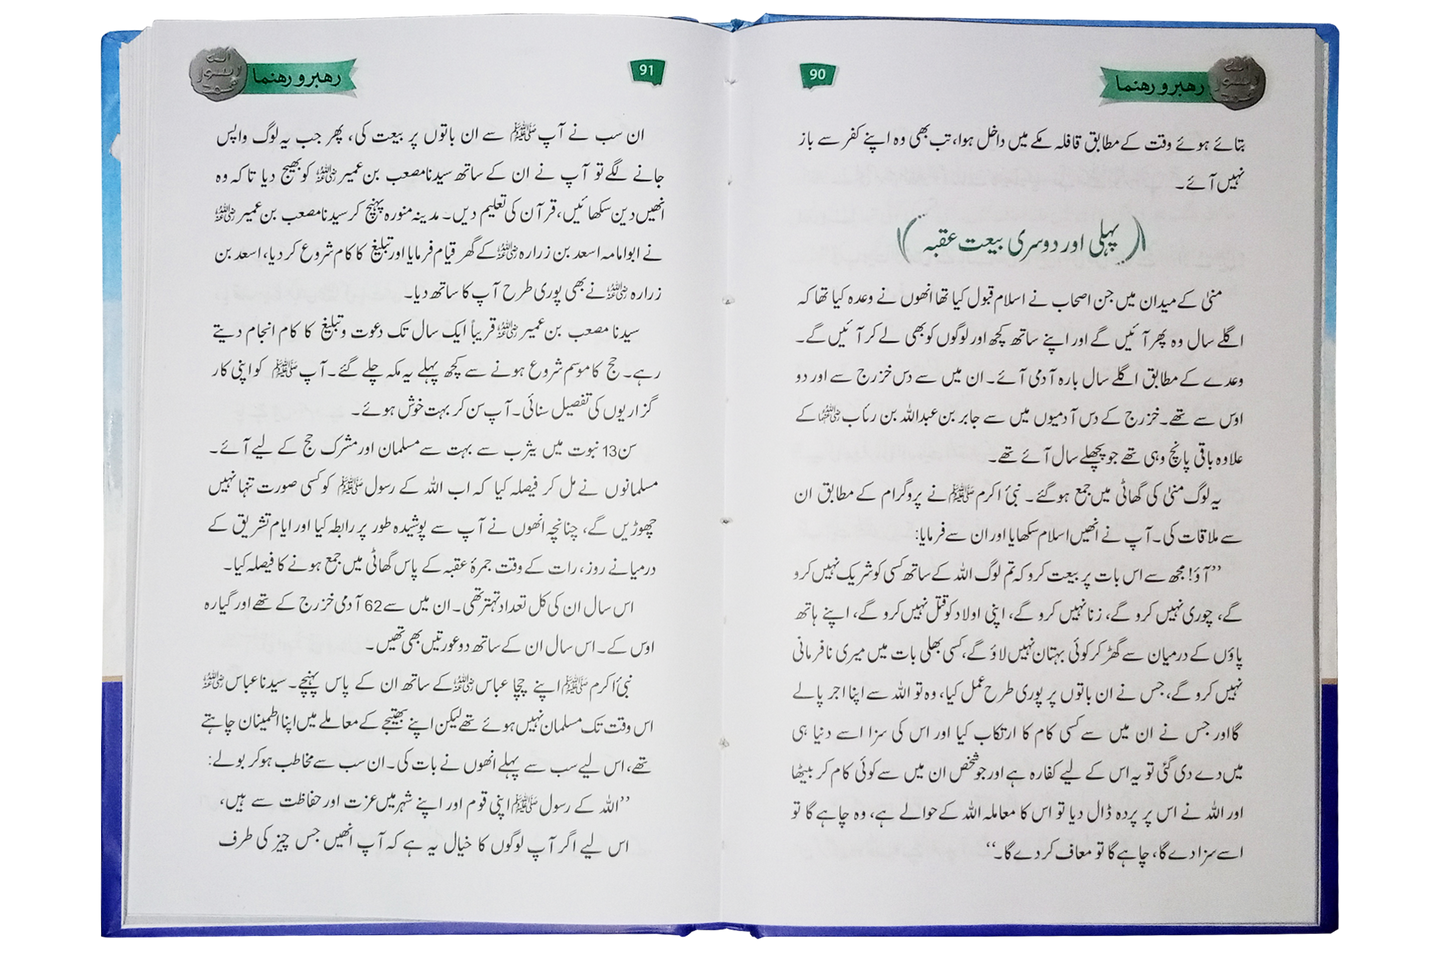 رهبر و رهنما
90
بتائے ہوئے وقت کے مطابق قافلہ مکے میں داخل ہوا، تب بھی وہ اپنے کفر سے باز
نہیں آئے۔
پہلی اور دوسری بیعت عقبہ
منیٰ کے میدان میں جن اصحاب نے اسلام قبول کیا تھا انھوں نے وعدہ کیا تھا کہ
اگلے سال وہ پھر آئیں گے اور اپنے ساتھ کچھ اور لوگوں کو بھی لے کر آئیں گے۔
وعدے کے مطابق اگلے سال بارہ آدمی آئے۔ ان میں سے دس خزرج سے اور دو
اوس سے تھے۔ خزرج کے دس آدمیوں میں سے جابر بن عبداللہ بن رئاب رضی اللہ عنہما کے
علاوہ باقی پانچ وہی تھے جو پچھلے سال آئے تھے۔
یہ لوگ منیٰ کی گھاٹی میں جمع ہو گئے۔ نبیٔ اکرم ﷺ نے پروگرام کے مطابق ان
سے ملاقات کی۔ آپ نے انھیں اسلام سکھایا اور ان سے فرمایا:
’’آؤ! مجھ سے اس بات پر بیعت کرو کہ تم لوگ اللہ کے ساتھ کسی کو شریک نہیں کرو
گے، چوری نہیں کرو گے، زنا نہیں کرو گے، اپنی اولاد کو قتل نہیں کرو گے، اپنے ہاتھ
پاؤں کے درمیان سے گھڑ کر کوئی بہتان نہیں لاؤ گے، کسی بھلی بات میں میری نافرمانی
نہیں کرو گے، جس نے ان باتوں پر پوری طرح عمل کیا، وہ تو اللہ سے اپنا اجر پالے
گا اور جس نے ان میں سے کسی کام کا ارتکاب کیا اور اس کی سزا اسے دنیا ہی
میں دے دی گئی تو یہ اس کے لیے کفارہ ہے اور جو شخص ان میں سے کوئی کام کر بیٹھا
اور اللہ نے اس پر پردہ ڈال دیا تو اس کا معاملہ اللہ کے حوالے ہے، وہ چاہے گا تو
اسے سزا دے گا، چاہے گا تو معاف کر دے گا۔‘‘
رهبر و رهنما
91
ان سب نے آپ ﷺ سے ان باتوں پر بیعت کی، پھر جب یہ لوگ واپس
جانے لگے تو آپ نے ان کے ساتھ سیدنا مصعب بن عمیر رضی اللہ عنہ کو بھیج دیا تاکہ وہ
انھیں دین سکھائیں، قرآن کی تعلیم دیں۔ مدینہ منورہ پہنچ کر سیدنا مصعب بن عمیر رضی اللہ عنہ
نے ابوامامہ اسعد بن زرارہ رضی اللہ عنہ کے گھر قیام فرمایا اور تبلیغ کا کام شروع کر دیا، اسعد بن
زرارہ رضی اللہ عنہ نے بھی پوری طرح آپ کا ساتھ دیا۔
سیدنا مصعب بن عمیر رضی اللہ عنہ قریباً ایک سال تک دعوت و تبلیغ کا کام انجام دیتے
رہے۔ حج کا موسم شروع ہونے سے کچھ پہلے یہ مکہ چلے گئے۔ آپ ﷺ کو اپنی کار
گزاریوں کی تفصیل سنائی۔ آپ سن کر بہت خوش ہوئے۔
سن 13 نبوت میں یثرب سے بہت سے مسلمان اور مشرک حج کے لیے آئے۔
مسلمانوں نے مل کر فیصلہ کیا کہ اب اللہ کے رسول ﷺ کو کسی صورت تنہا نہیں
چھوڑیں گے، چنانچہ انھوں نے آپ سے پوشیدہ طور پر رابطہ کیا اور ایام تشریق کے
درمیانے روز، رات کے وقت جمرۂ عقبہ کے پاس گھاٹی میں جمع ہونے کا فیصلہ کیا۔
اس سال ان کی کل تعداد تہتر تھی۔ ان میں سے 62 آدمی خزرج کے تھے اور گیارہ
اوس کے۔ اس سال ان کے ساتھ دو عورتیں بھی تھیں۔
نبیٔ اکرم ﷺ اپنے چچا عباس رضی اللہ عنہ کے ساتھ ان کے پاس پہنچے۔ سیدنا عباس رضی اللہ عنہ
اس وقت تک مسلمان نہیں ہوئے تھے لیکن اپنے بھتیجے کے معاملے میں اپنا اطمینان چاہتے
تھے، اس لیے سب سے پہلے انھوں نے بات کی۔ ان سب سے مخاطب ہو کر بولے:
’’اللہ کے رسول ﷺ اپنی قوم اور اپنے شہر میں عزت اور حفاظت سے ہیں،
اس لیے اگر آپ لوگوں کا خیال یہ ہے کہ آپ انھیں جس چیز کی طرف